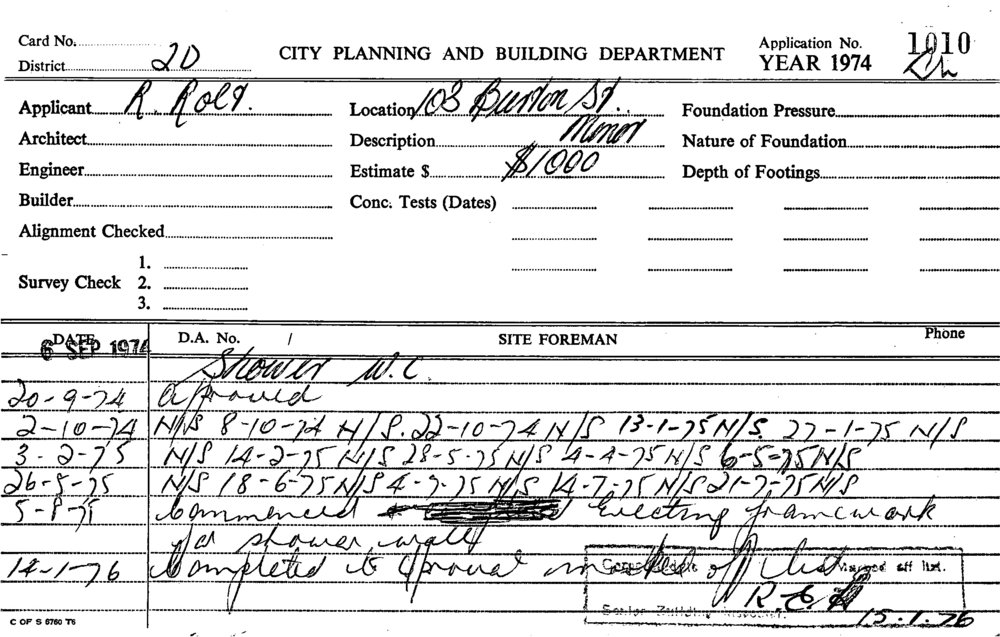 Card No.
District 2D
CITY PLANNING AND BUILDING DEPARTMENT
Application No. 1010
YEAR 1974
Applicant R. Rolt.
Location 108 Burton St.
Foundation Pressure
Architect
Description Minor
Nature of Foundation
Engineer
Estimate $ $1000
Depth of Footings
Builder
Conc. Tests (Dates)
Alignment Checked
Survey Check
1.
2.
3.
DATE
D.A. No. /
SITE FOREMAN
Phone
6 SEP 1974
Shower W.C.
20-9-74 Approved
2-10-74 N/S 8-10-74 N/S. 22-10-74 N/S 13-1-75 N/S. 27-1-75 N/S
3-2-75 N/S 14-2-75 N/S 28-5-75 N/S 4-4-75 N/S 6-5-75 N/S
26-5-75 N/S 18-6-75 N/S 4-7-75 N/S 14-7-75 N/S 21-7-75 N/S
5-8-75 Commenced erecting framework
for shower walls
14-1-76 Completed to approval marked off list
marked off list.
Senior Building Inspector.
15.1.76
C OF S 5760 T6